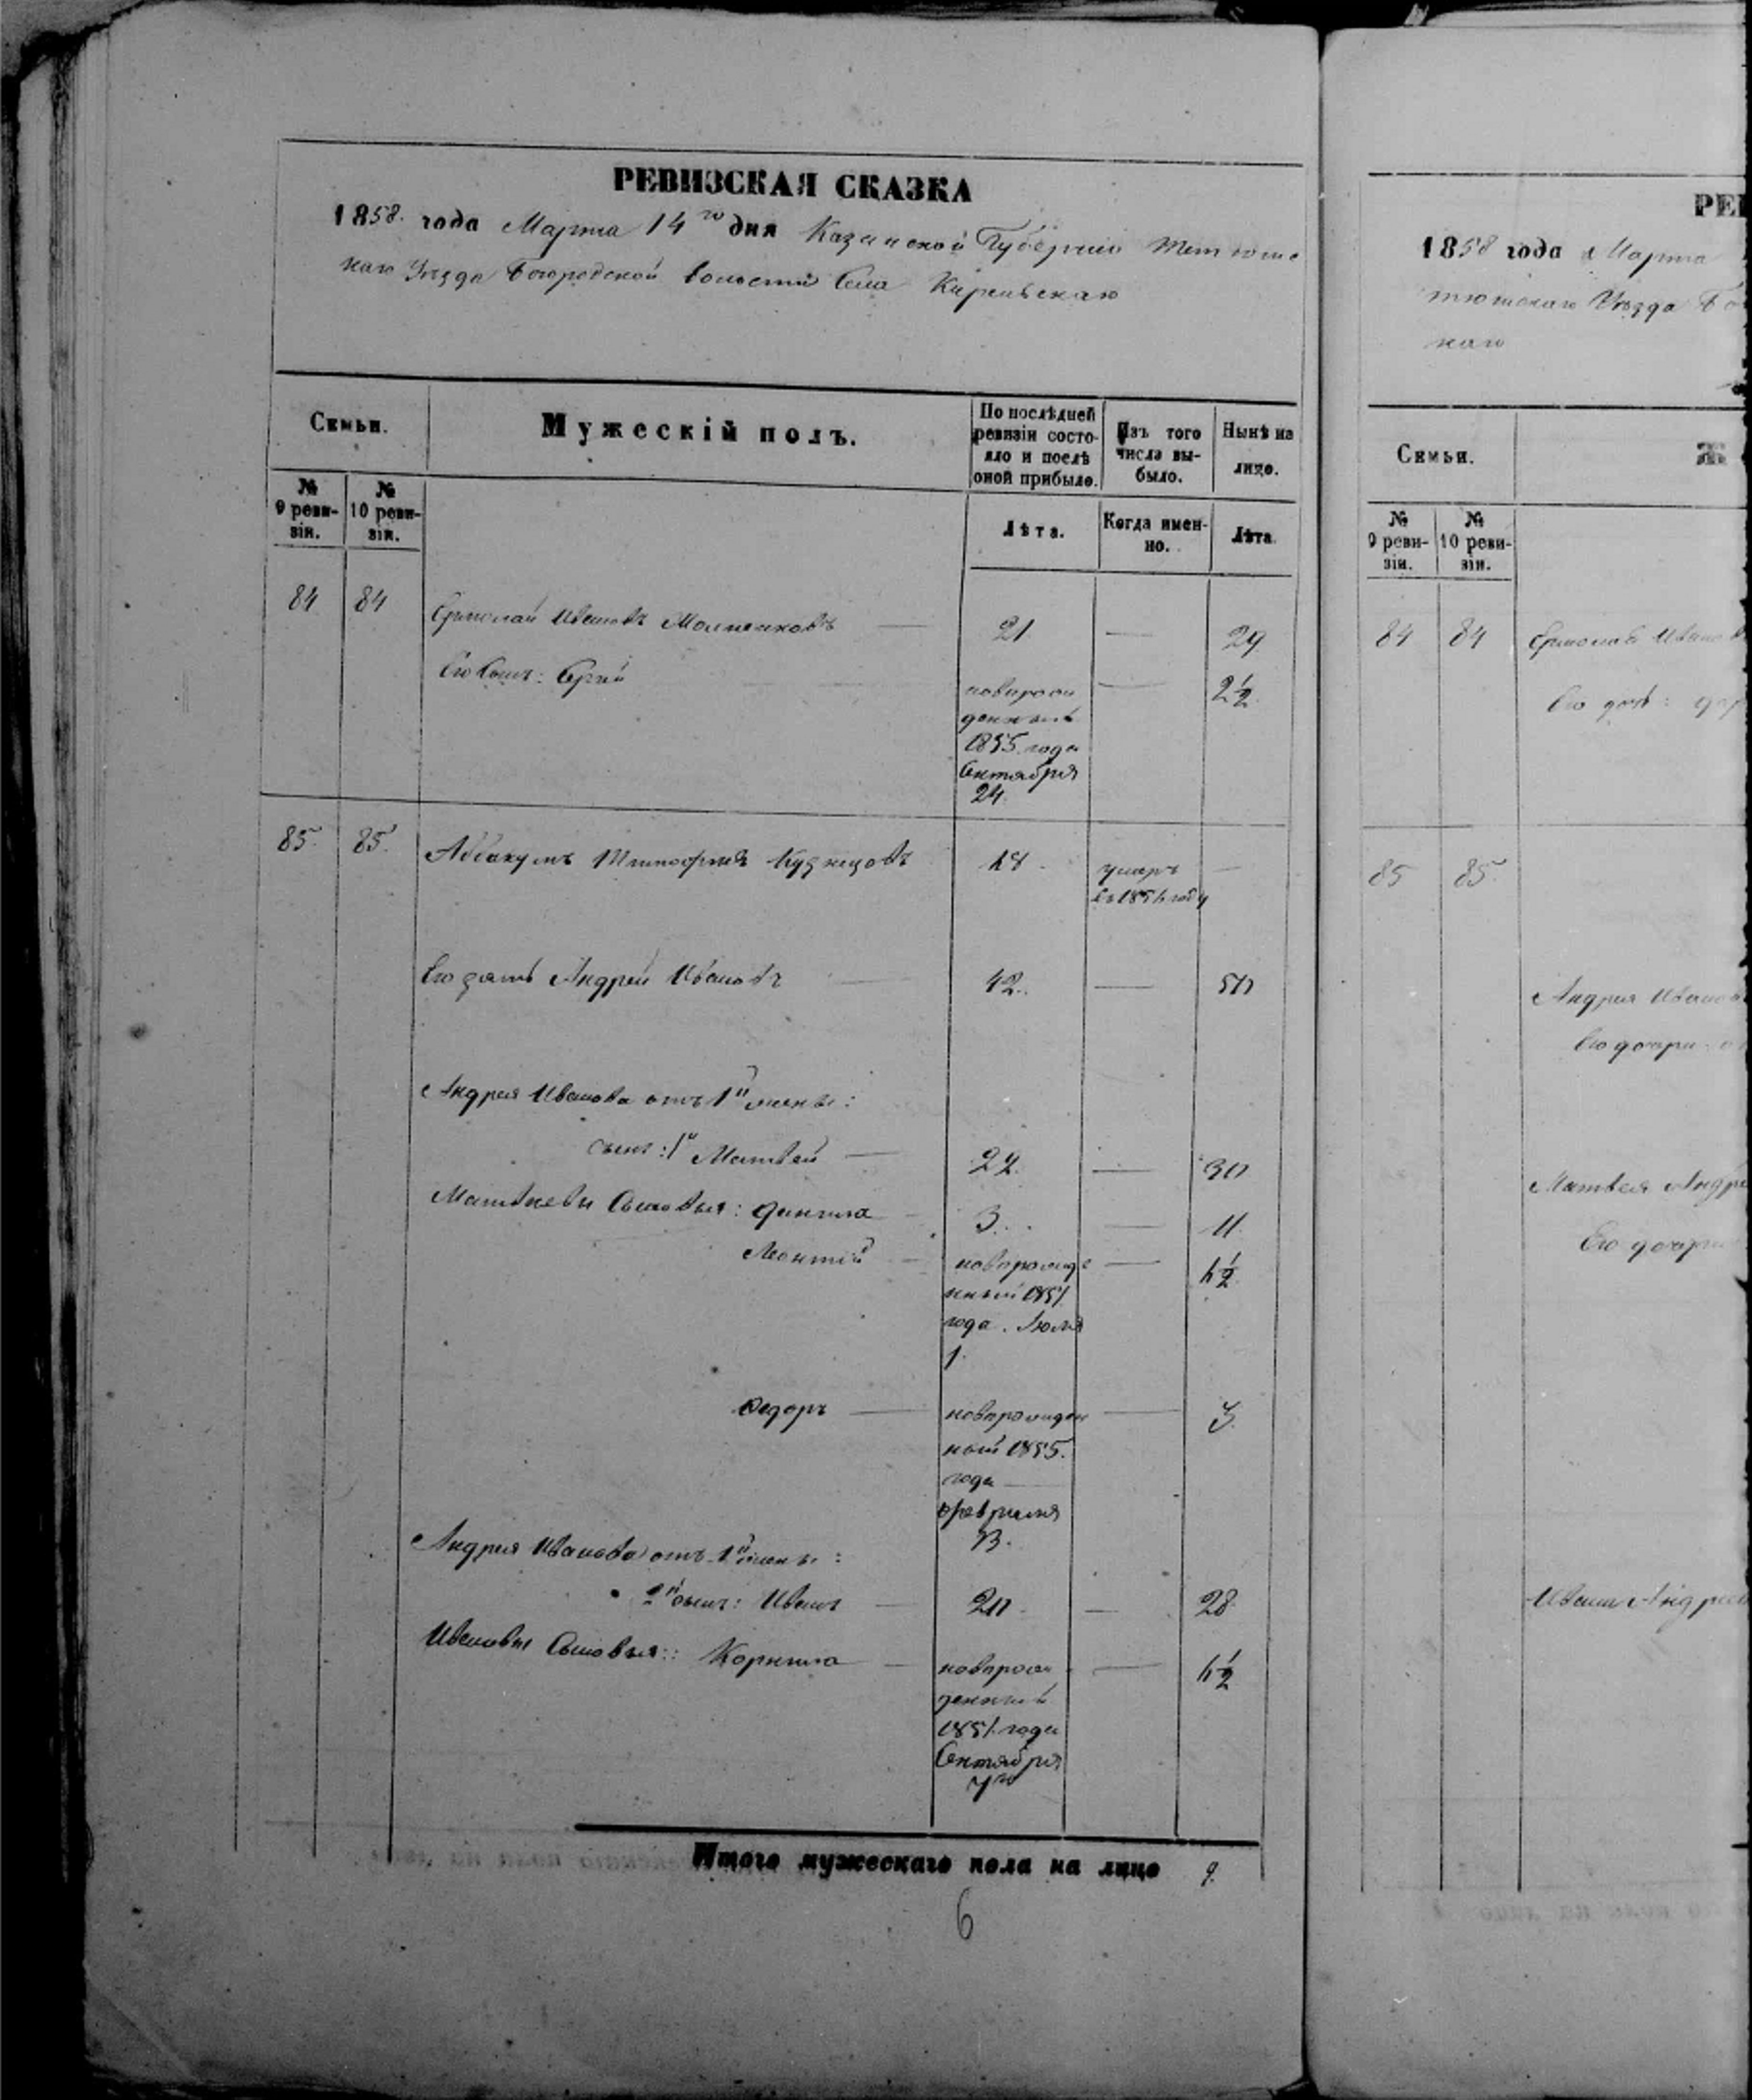 РЕВИЗСКАЯ СКАЗКА
1858. года Марта 14го дня Казанской Губернiи Тетюшс
каго Уѣзда Богородской волости Села Кирельскаго
Семьи.
Мужескiй полъ.
По послѣдней ревизiи состояло и послѣ оной прибыло.
Изъ того числа выбыло.
Нынѣ на лицо.
№ 9 ревизiи.
№ 10 ревизiи.
Лѣта.
Когда именно.
Лѣта
84 84 Ермолай Ивановъ — 21 — 29
Его Сынъ: новорож — 2½
денный
1855. года
Сентября
24.
85. 85. Аввакумъ Тимофеевъ Кузнецовъ умаръ —
въ 185 году
Его зять Андрей Ивановъ — 42. — 50
Андрея Иванова отъ 1й жены:
сынъ: 1й Матвей — 22. — 30
Матвѣевы Сыновья: Данила — 3. — 11.
Леонтiй — новорожде — ½
нный 185
года. Iюля
1.
Федоръ — новорожден — 3.
ный 1855.
года
февраля
Андрея Иванова отъ 1й жены:
2й сынъ: Иванъ — 20 — 28
Ивановы Сыновья: Корнила — новорож — ½
денный
185 года
Сентября
Итого мужескаго пола на лицо 9.
6
РЕ
1858 года Марта
тюшскаго Уѣзда Бо
каго
Семьи.
Ж
№ 9 ревизiи.
№ 10 ревизiи.
84 84 Ермолая Ивано
Его дочь:
85 85.
Андрея Иванов
Его дочери
Матвея Андре
Его дочери
Ивана Андрее